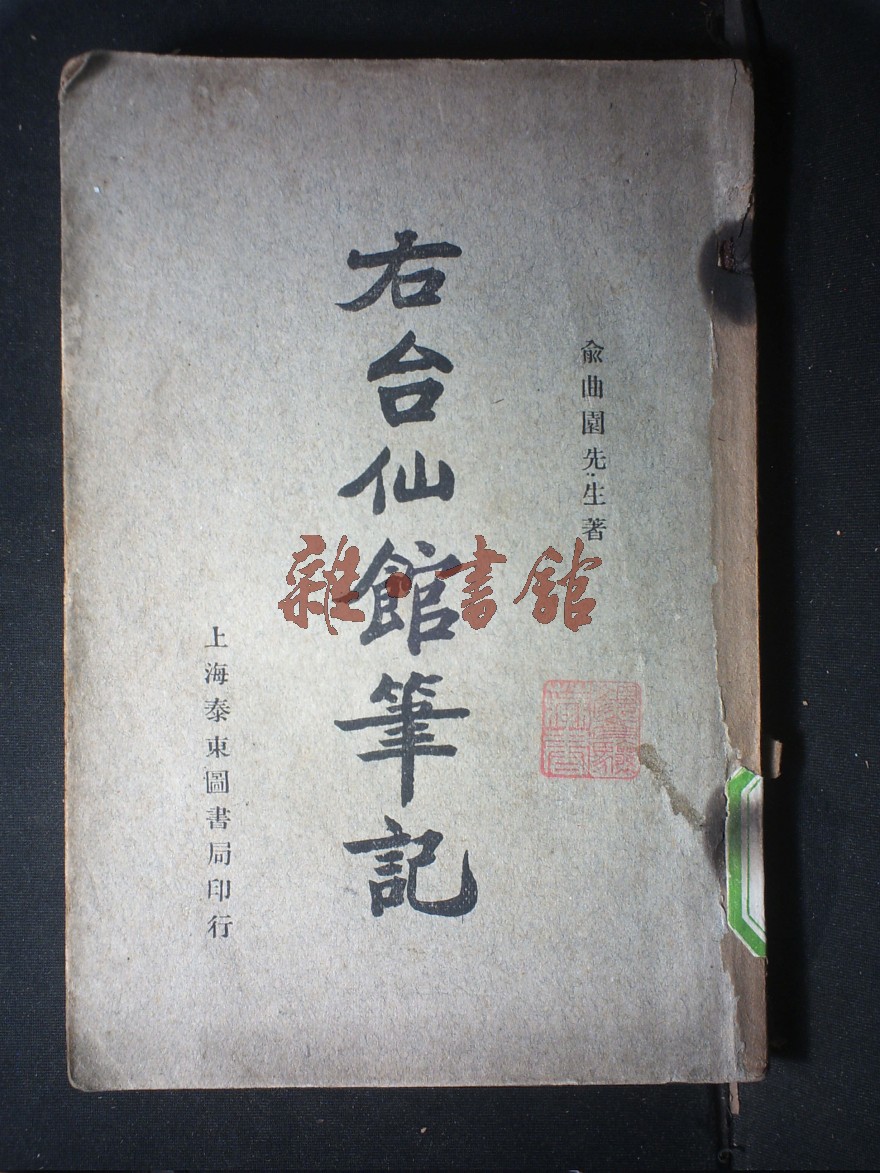 俞曲園先生著
右台仙館筆記
上海泰東圖書局印行
雜·書館